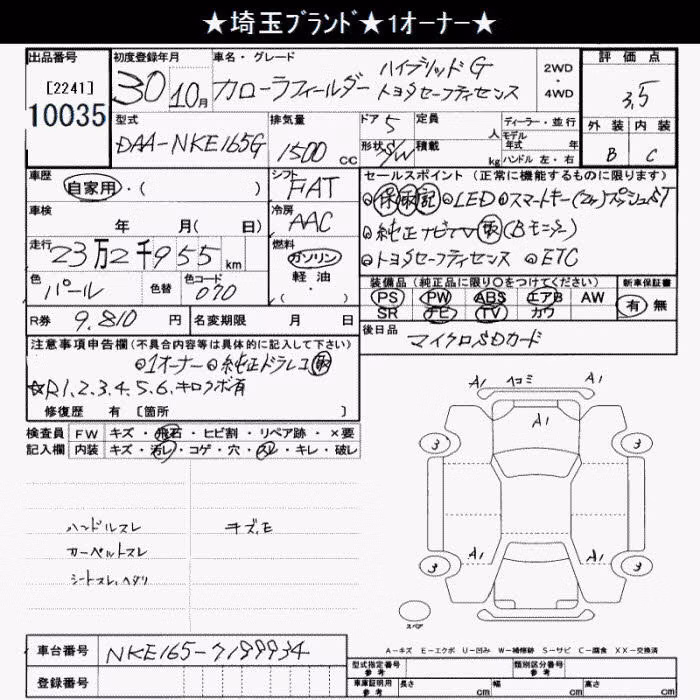 ★埼玉ﾌﾞﾗﾝﾄﾞ★1オーナー★
出品番号 初度登録年月 車名・グレード 評価点
[2241] 30 10月 カローラフィールダー ハイブリッドG 2WD
トヨタセーフティセンス 4WD 3,5
10035 型式 排気量 ドア 5 定員 人 ディーラー・並行 外装 内装
DAA-NKE165G 1500 cc 形状 S/W 積載 kg モデル年式 年 B C
ハンドル 左・右
車歴 シフト セールスポイント (正常に機能するものに限ります)
自家用・( ) FAT ◎保取記 ◎LED ◎スマートキー(2ヶ)プッシュST
車検 冷房 ◎純正ナビTV取(Bモニター)
年 月( 日) AAC ◎トヨタセーフティセンス ◎ETC
走行 燃料 装備品 (純正品に限り○をつけてください) 新車保証書
23万2千955km ガソリン PS PW ABS エアB AW 有 無
色 パール 色替 色コード 070 軽油 SR ナビ TV カワ
( ・ )
R券 9.810 円 名変期限 月 日 後日品 マイクロSDカード
注意事項申告欄(不具合内容等は具体的に記入して下さい)
◎1オーナー ◎純正ドラレコ取
☆R1,2,3,4,5,6,キロクボ有
修復歴 有 [箇所 ]
検査員 FW キズ・飛石・ヒビ割・リペア跡・×要
記入欄 内装 キズ・汚レ・コゲ・穴・スレ・キレ・破レ
A1 ヘコミ A1
A1
3 3
A1 A1
3 3
ハンドルスレ キズ,モ
カーペットスレ
シートスレ,ヘタリ
スペア
A-キズ E-エクボ U-凹み W-補修跡 S-サビ C-腐食 XX-交換済
車台番号 NKE165-7199934
型式指定番号 参考 類別区分番号 参考
登録番号 車庫証明用 参考 長さ cm 幅 cm 高さ cm